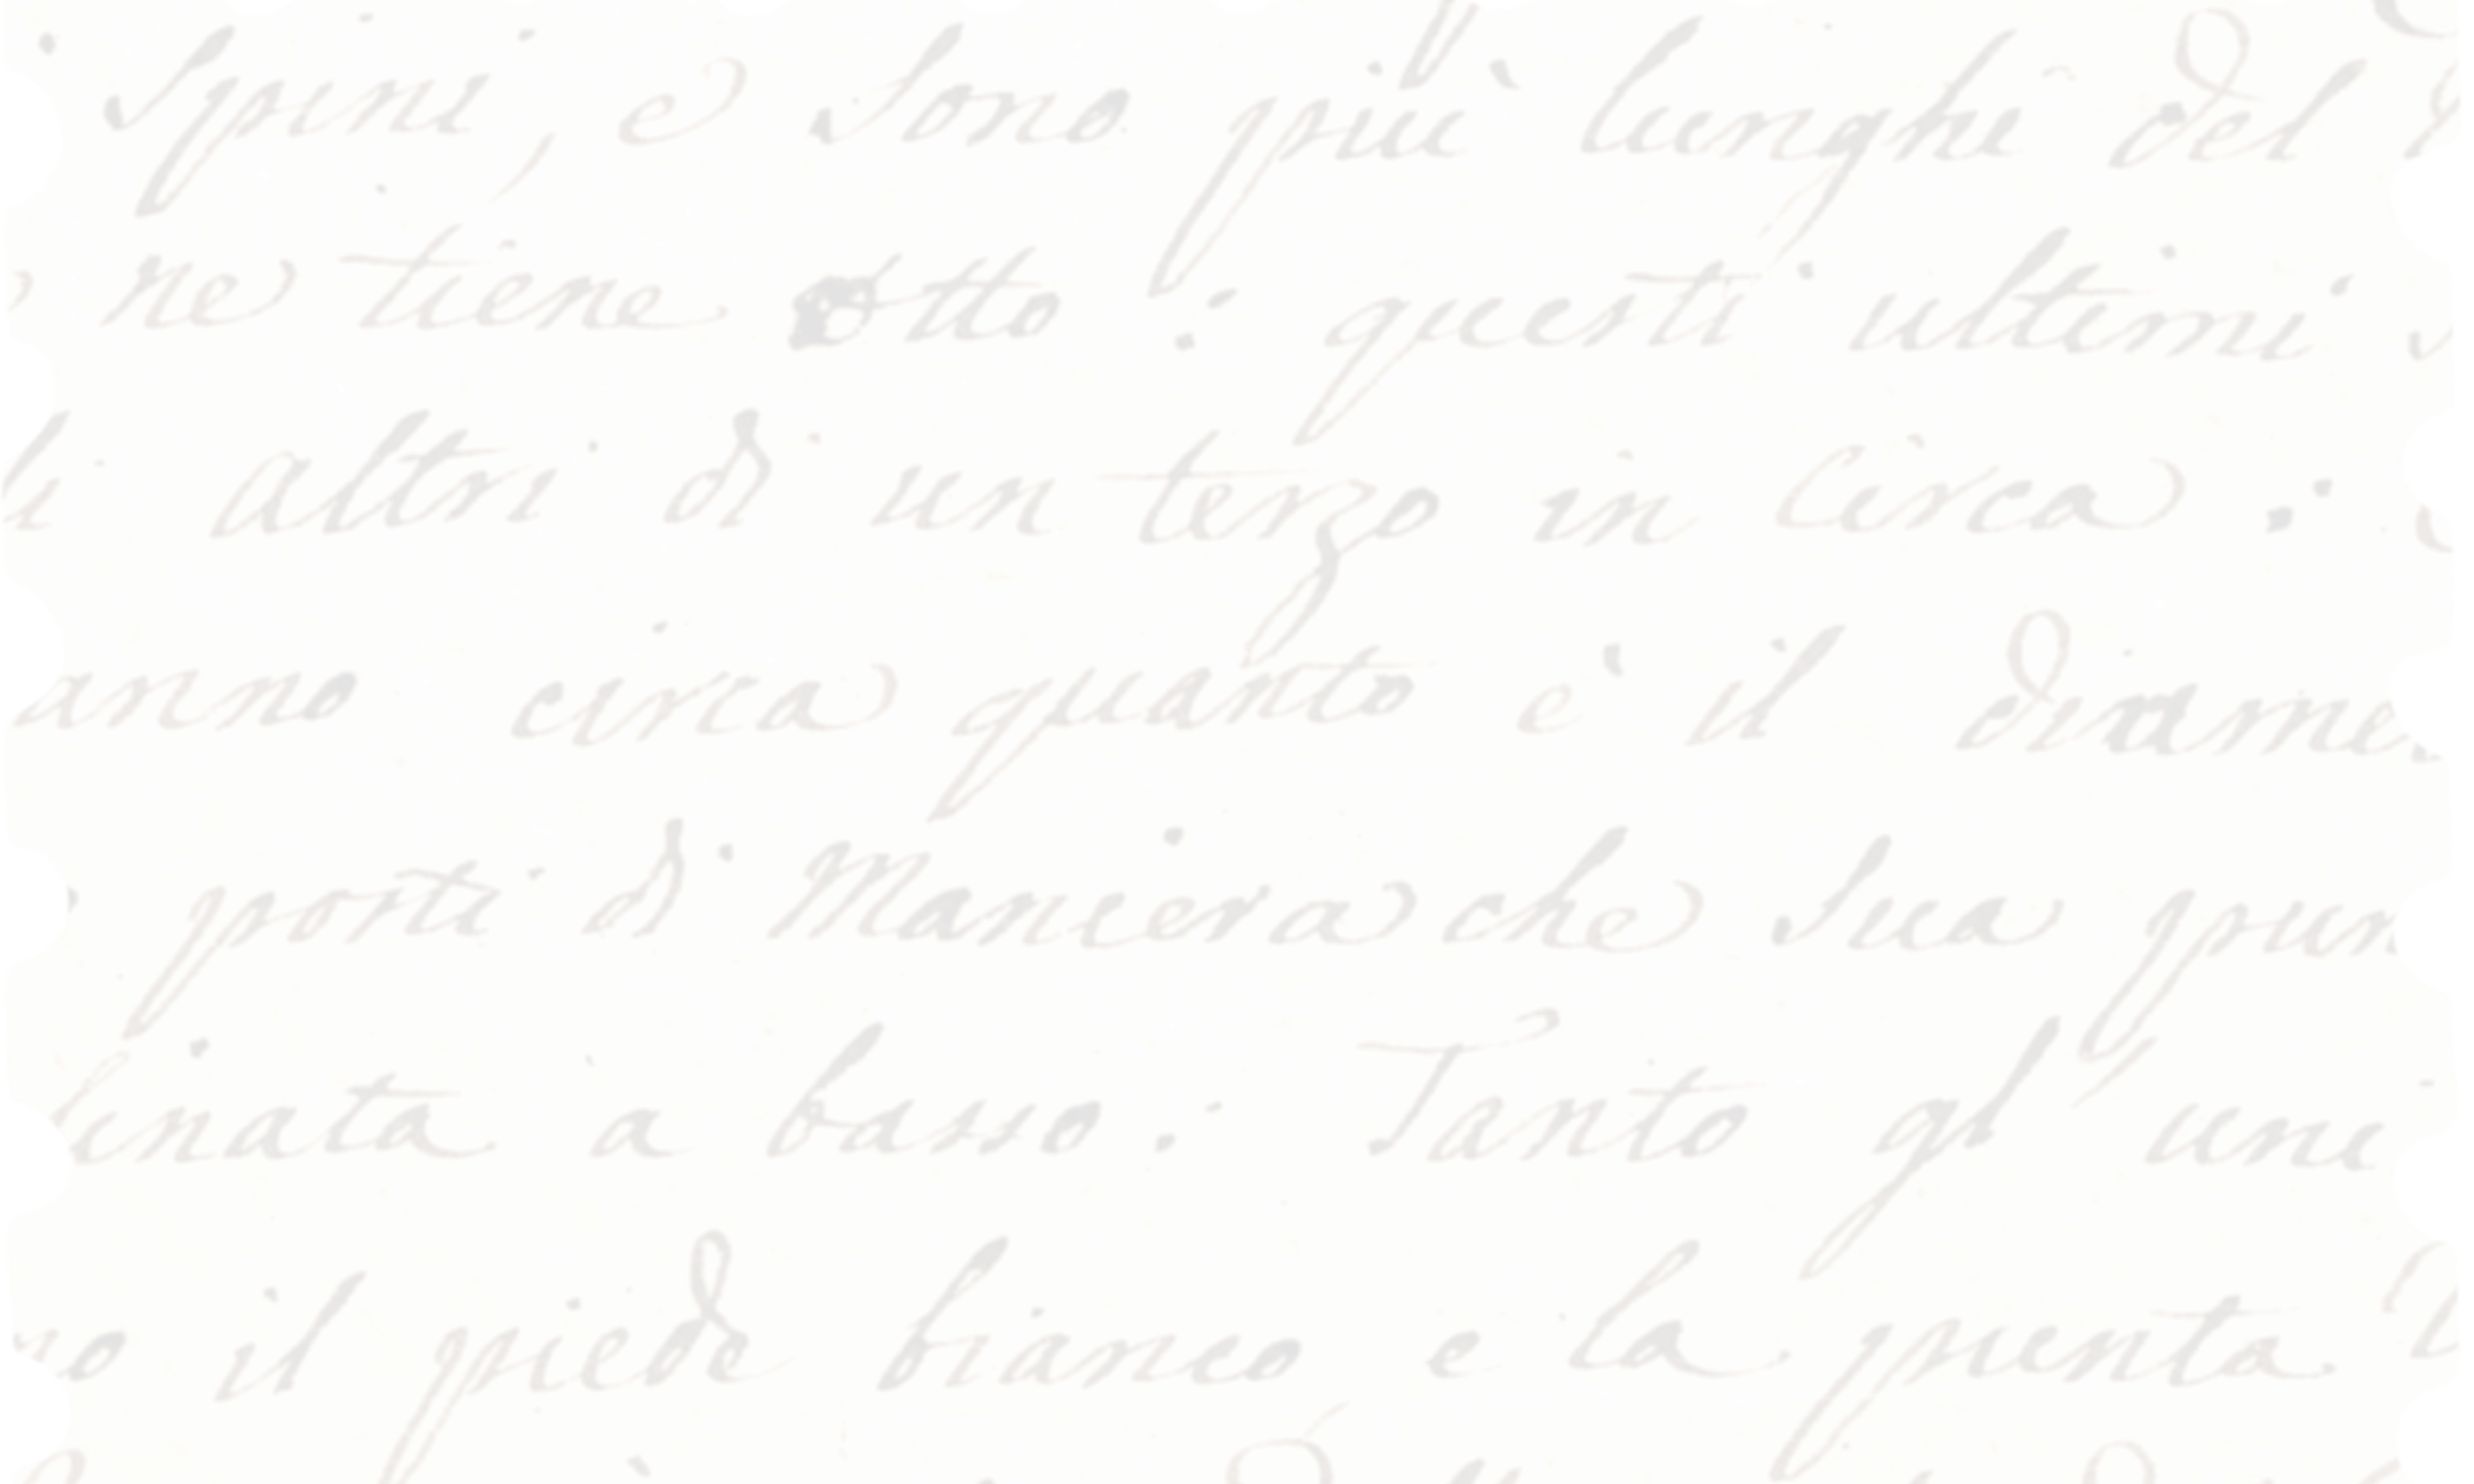 Spini, e Sono più lunghi del
ne tiene otto : questi ultimi
altri di un terzo in Circa :
anno circa quanto è il diame
porti di Maniera che Sua pun
linata a basso : Tanto gl' uni
il piede bianco e la punta